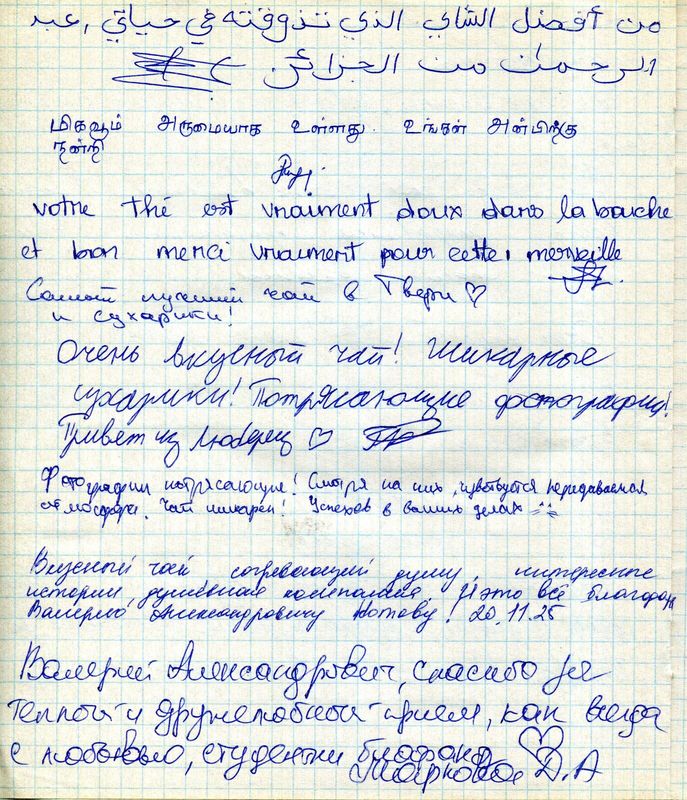 من أفضل الشاي الذي تذوقته في حياتي, عبد
الرحمان من الجزائر.
மிகவும் அருமையாக உள்ளது. உங்கள் அன்பிற்கு
நன்றி
votre thé est vraiment doux dans la bouche
et bon merci vraiment pour cette merveille
Самый лучший чай в Твери ♡
и сухарики!
Очень вкусный чай! Шикарные
сухарики! Потрясающие фотографии!
Привет из Люберец ♡
Фотографии потрясающие! Смотря на них, чувствуется передаваемая
атмосфера. Чай шикарен! Успехов в ваших делах
Вкусный чай согревающий душу, интересные
истории, душевная компания. И это всё благодаря
Валерию Александровичу Котову! 20.11.25
Валерий Александрович, спасибо за
теплый и дружелюбный прием, как всегда
с любовью, студентки биофака ♡
Маркова Д.А